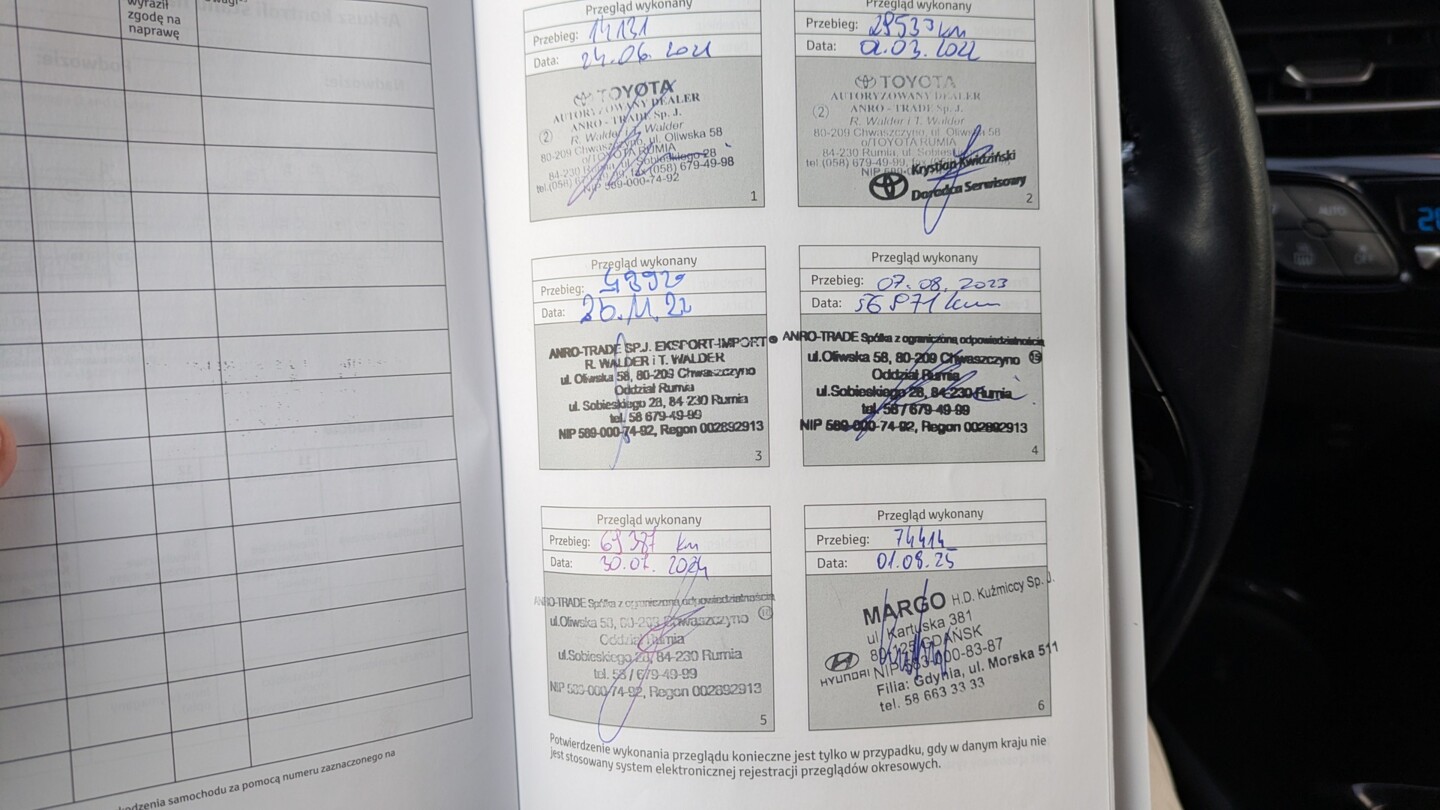 wyraził
zgodę na
naprawę
Przegląd wykonany
Przebieg: 14131
Data: 24.06. 2021
TOYOTA
AUTORYZOWANY DEALER
ANRO - TRADE Sp. J.
(2) R. Walder i T. Walder
80-209 Chwaszczyno, ul. Oliwska 58
o/TOYOTA RUMIA
84-230 Rumia, ul. Sobieskiego 28
fax (058) 679-49-98
NIP 589-000-74-92
1
Przegląd wykonany
Przebieg: 28533 km
Data: 01.03. 2022
TOYOTA
AUTORYZOWANY DEALER
(2) ANRO - TRADE Sp. J.
R. Walder i T. Walder
80-209 Chwaszczyno, ul. Oliwska 58
o/TOYOTA RUMIA
84-230 Rumia, ul.
tel.(058) 679-49-99,
NIP
Krystian Kwidziński
Doradca Serwisowy
2
Przegląd wykonany
Przebieg:
Data: 26.11.22
ANRO-TRADE SP.J. EKSPORT-IMPORT
R. WALDER i T. WALDER
ul. Oliwska 58, 80-209 Chwaszczyno
Oddział Rumia
ul. Sobieskiego 28, 84-230 Rumia
tel. 58 679-49-99
NIP 589-000-74-92, Regon 002892913
3
Przegląd wykonany
Przebieg: 07.08. 2023
Data: 56 871 km
ANRO-TRADE Spółka z ograniczoną odpowiedzialnością
ul.Oliwska 58, 80-209 Chwaszczyno
Oddział Rumia
ul.Sobieskiego 28, 84-230 Rumia
tel. 58 / 679-49-99
NIP 589-000-74-92, Regon 002892913
4
Przegląd wykonany
Przebieg: 69387 km
Data: 30.07. 2024
ANRO-TRADE Spółka z ograniczoną odpowiedzialnością
ul.Oliwska 58, 80-209 Chwaszczyno
Oddział Rumia
ul.Sobieskiego 28, 84-230 Rumia
tel. 58 / 679-49-99
NIP 589-000-74-92, Regon 002892913
5
Przegląd wykonany
Przebieg: 74414
Data: 01.08.25
MARGO H.D. Kuźmiccy Sp. J.
ul. Kartuska 381
80-125 GDAŃSK
HYUNDAI NIP 583-000-83-87
Filia: Gdynia, ul. Morska 511
tel. 58 663 33 33
6
Potwierdzenie wykonania przeglądu konieczne jest tylko w przypadku, gdy w danym kraju nie
jest stosowany system elektronicznej rejestracji przeglądów okresowych.
samochodu za pomocą numeru zaznaczonego na
AUTO
OFF